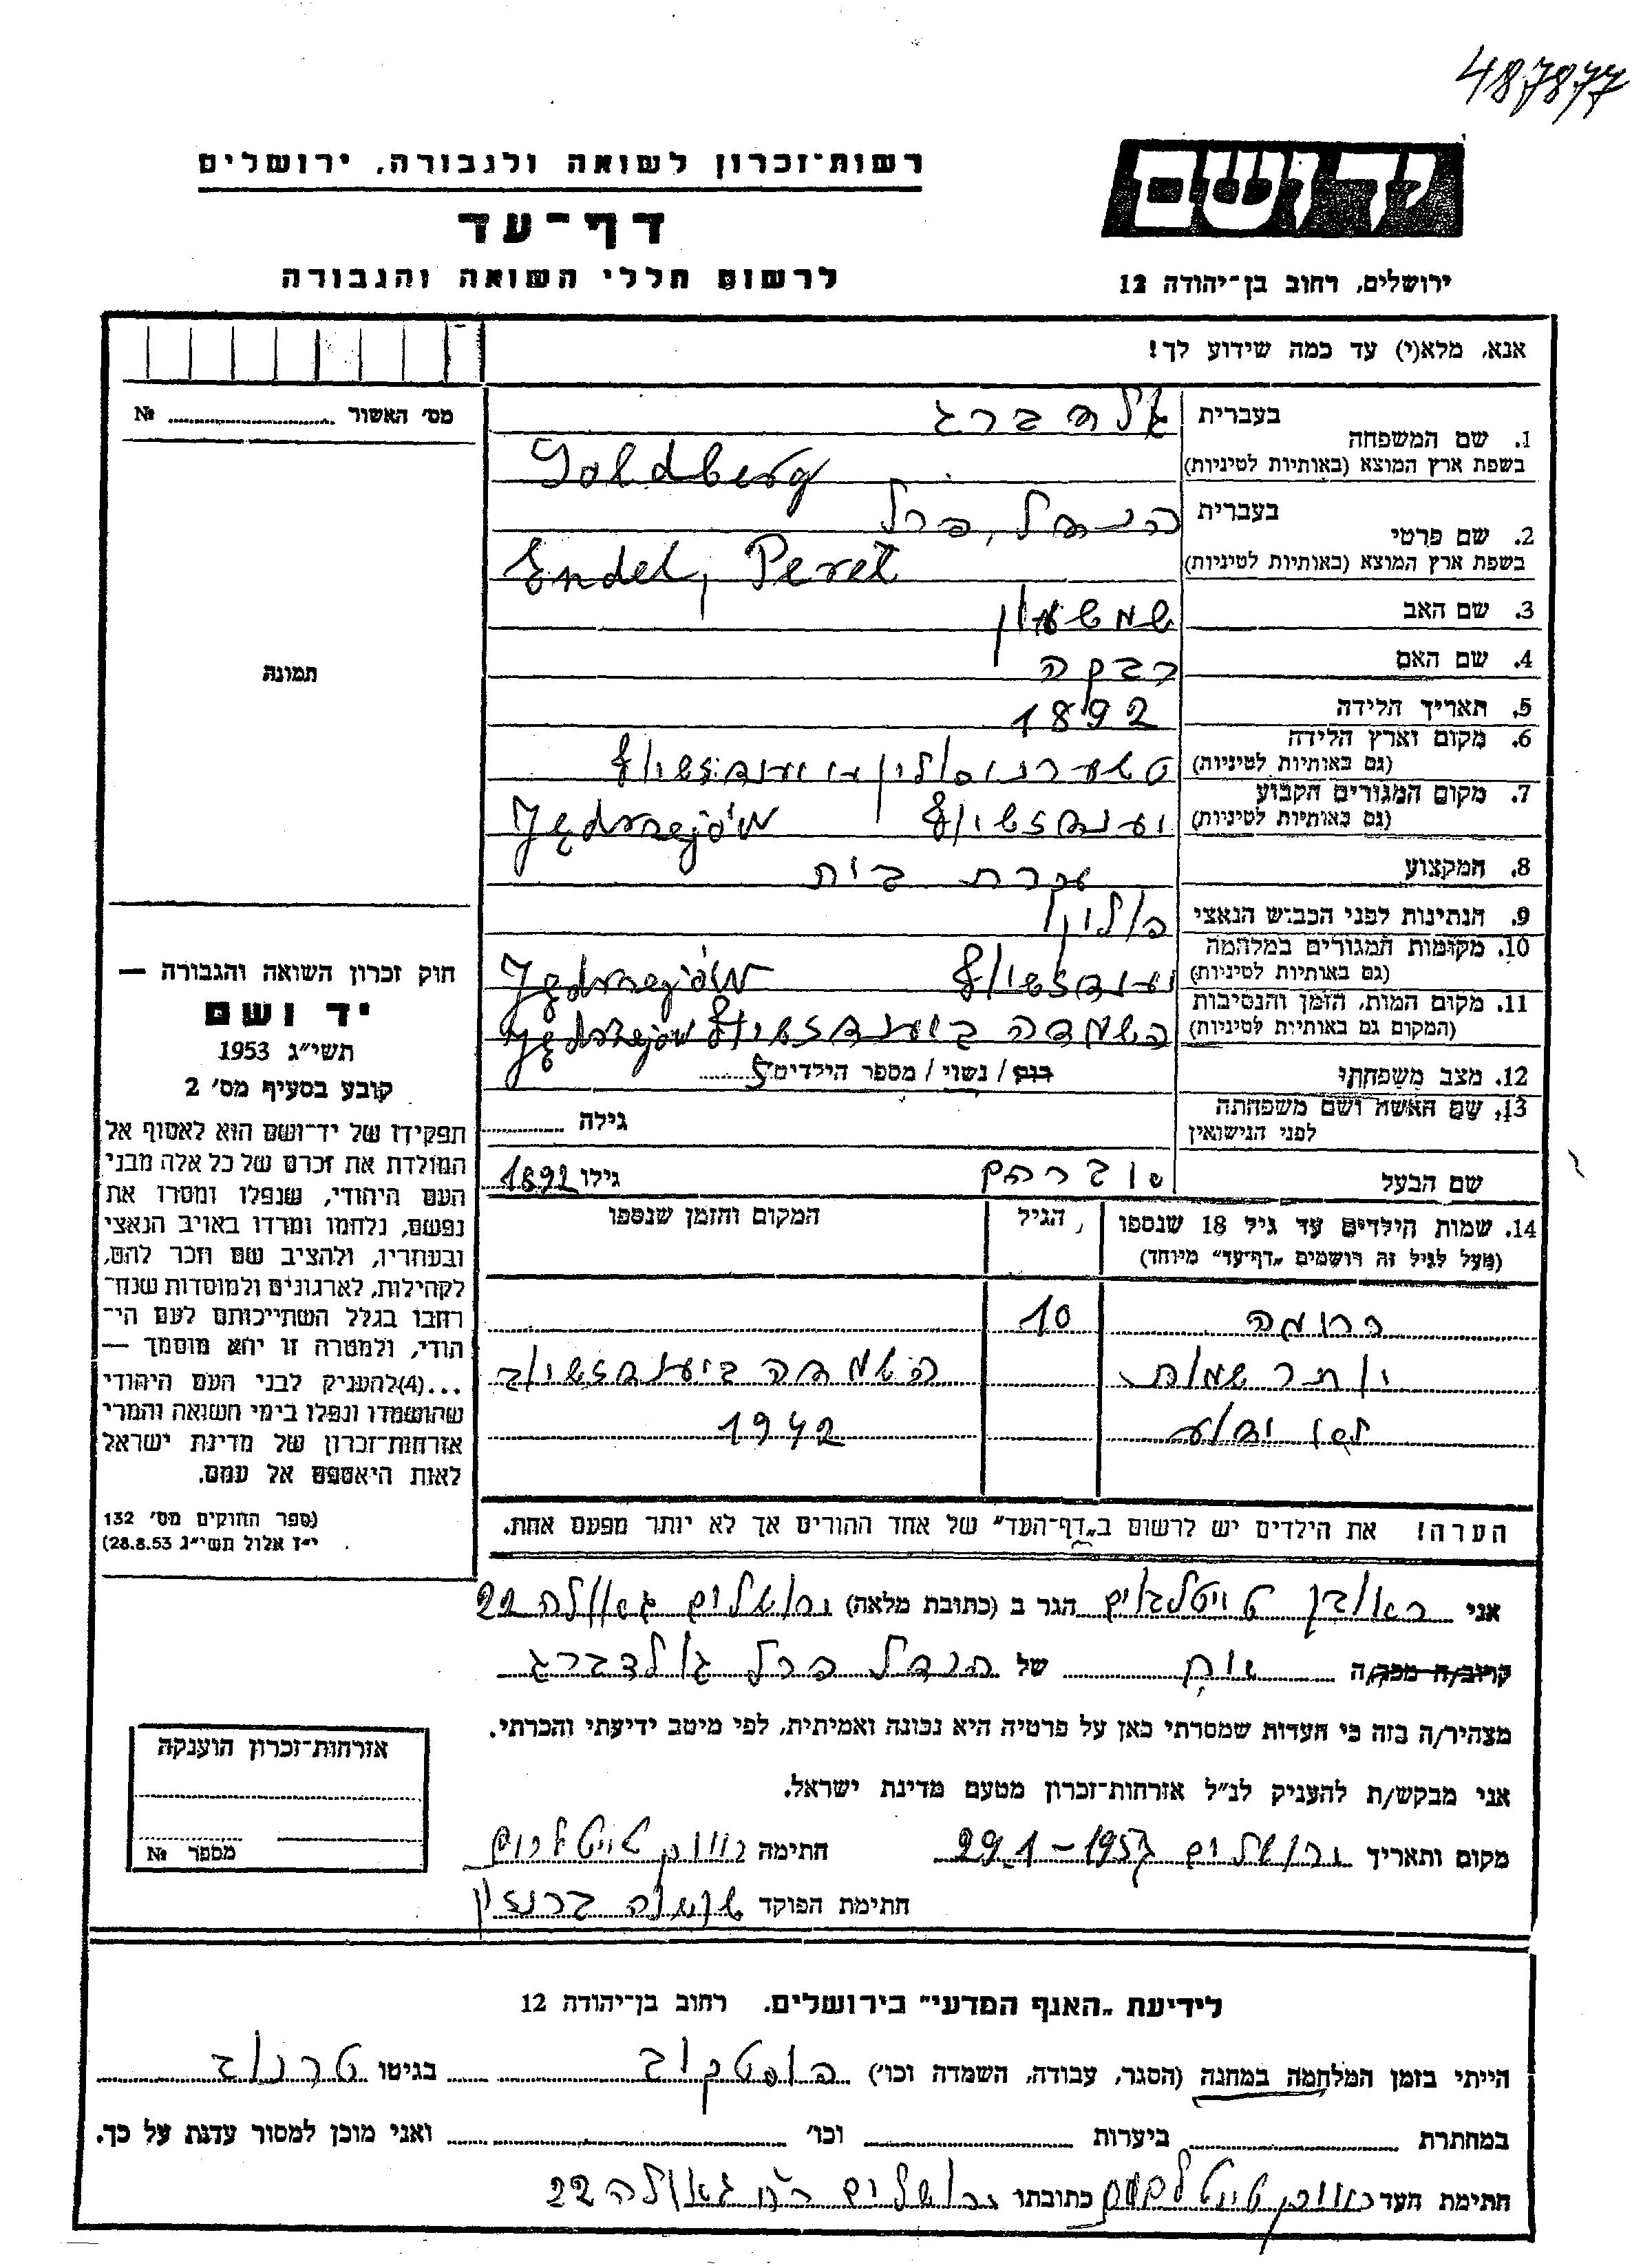 487877
יד ושם
רשות־זכרון לשואה ולגבורה, ירושלים
דף־עד
לרשום חללי השואה והגבורה
ירושלים, רחוב בן־יהודה 12
אנא, מלא(י) עד כמה שידוע לך!
מס׳ האשור № ........
1. שם המשפחה בעברית גולדברג
בשפת ארץ המוצא (באותיות לטיניות) Goldberg
2. שם פרטי בעברית הינדל, פרל
בשפת ארץ המוצא (באותיות לטיניות) Endel, Perel
3. שם האב שמשעון
4. שם האם רבקה
5. תאריך הלידה 1892
6. מקום וארץ הלידה
(גם באותיות לטיניות)
7. מקום המגורים הקבוע יענדזשיוף Jędrzejów
(גם באותיות לטיניות)
8. המקצוע עקרת בית
9. הנתינות לפני הכבוש הנאצי פולין
10. מקומות המגורים במלחמה יענדזשיוף Jędrzejów
(גם באותיות לטיניות)
11. מקום המות, הזמן והנסיבות השמדה ביענדזשיוף Jędrzejów
(המקום גם באותיות לטיניות)
12. מצב משפחתי רווק / נשוי / מספר הילדים 5
13. שם האשה ושם משפחתה
לפני הנישואין גילה ........
שם הבעל גילו 1892
14. שמות הילדים עד גיל 18 שנספו
(מעל לגיל זה רושמים „דף־עד״ מיוחד)
הגיל
המקום והזמן שנספו
נחמה 10
יותר שמות השמדה ביענדזשיוב
לא ידוע 1942
הערה! את הילדים יש לרשום ב„דף־העד״ של אחד ההורים אך לא יותר מפעם אחת.
תמונה
חוק זכרון השואה והגבורה —
יד ושם
תשי״ג 1953
קובע בסעיף מס׳ 2
תפקידו של יד־ושם הוא לאסוף אל
המולדת את זכרם של כל אלה מבני
העם היהודי, שנפלו ומסרו את
נפשם, נלחמו ומרדו באויב הנאצי
ובעוזריו, ולהציב שם וזכר להם,
לקהילות, לארגונים ולמוסדות שנח־
רבו בגלל השתייכותם לעם הי־
הודי, ולמטרה זו יהא מוסמך —
...(4)להעניק לבני העם היהודי
שהושמדו ונפלו בימי השואה והמרי
אזרחות־זכרון של מדינת ישראל
לאות היאספם אל עמם.
(ספר החוקים מס׳ 132
י״ז אלול תשי״ג 28.8.53)
אני ראובן טייטלבוים הגר ב (כתובת מלאה) ירושלים גאולה 22
קרוב/ה מכר/ה אח של הינדל פרל גולדברג
מצהיר/ה בזה כי העדות שמסרתי כאן על פרטיה היא נכונה ואמיתית, לפי מיטב ידיעתי והכרתי.
אני מבקש/ת להעניק לנ״ל אזרחות־זכרון מטעם מדינת ישראל.
מקום ותאריך ירושלים 29.1-1957 חתימה ראובן טייטלבוים
חתימת הפוקד
אזרחות־זכרון הוענקה
מספר №
לידיעת „האגף המדעי״ בירושלים. רחוב בן־יהודה 12
הייתי בזמן המלחמה במחנה (הסגר, עבודה, השמדה וכו׳) פוסטקוב בגיטו טרנוב
במחתרת ........ ביערות ........ וכו׳ ........ ואני מוכן למסור עדות על כך.
חתימת העד ראובן טייטלבוים כתובתו ירושלים רח׳ גאולה 22